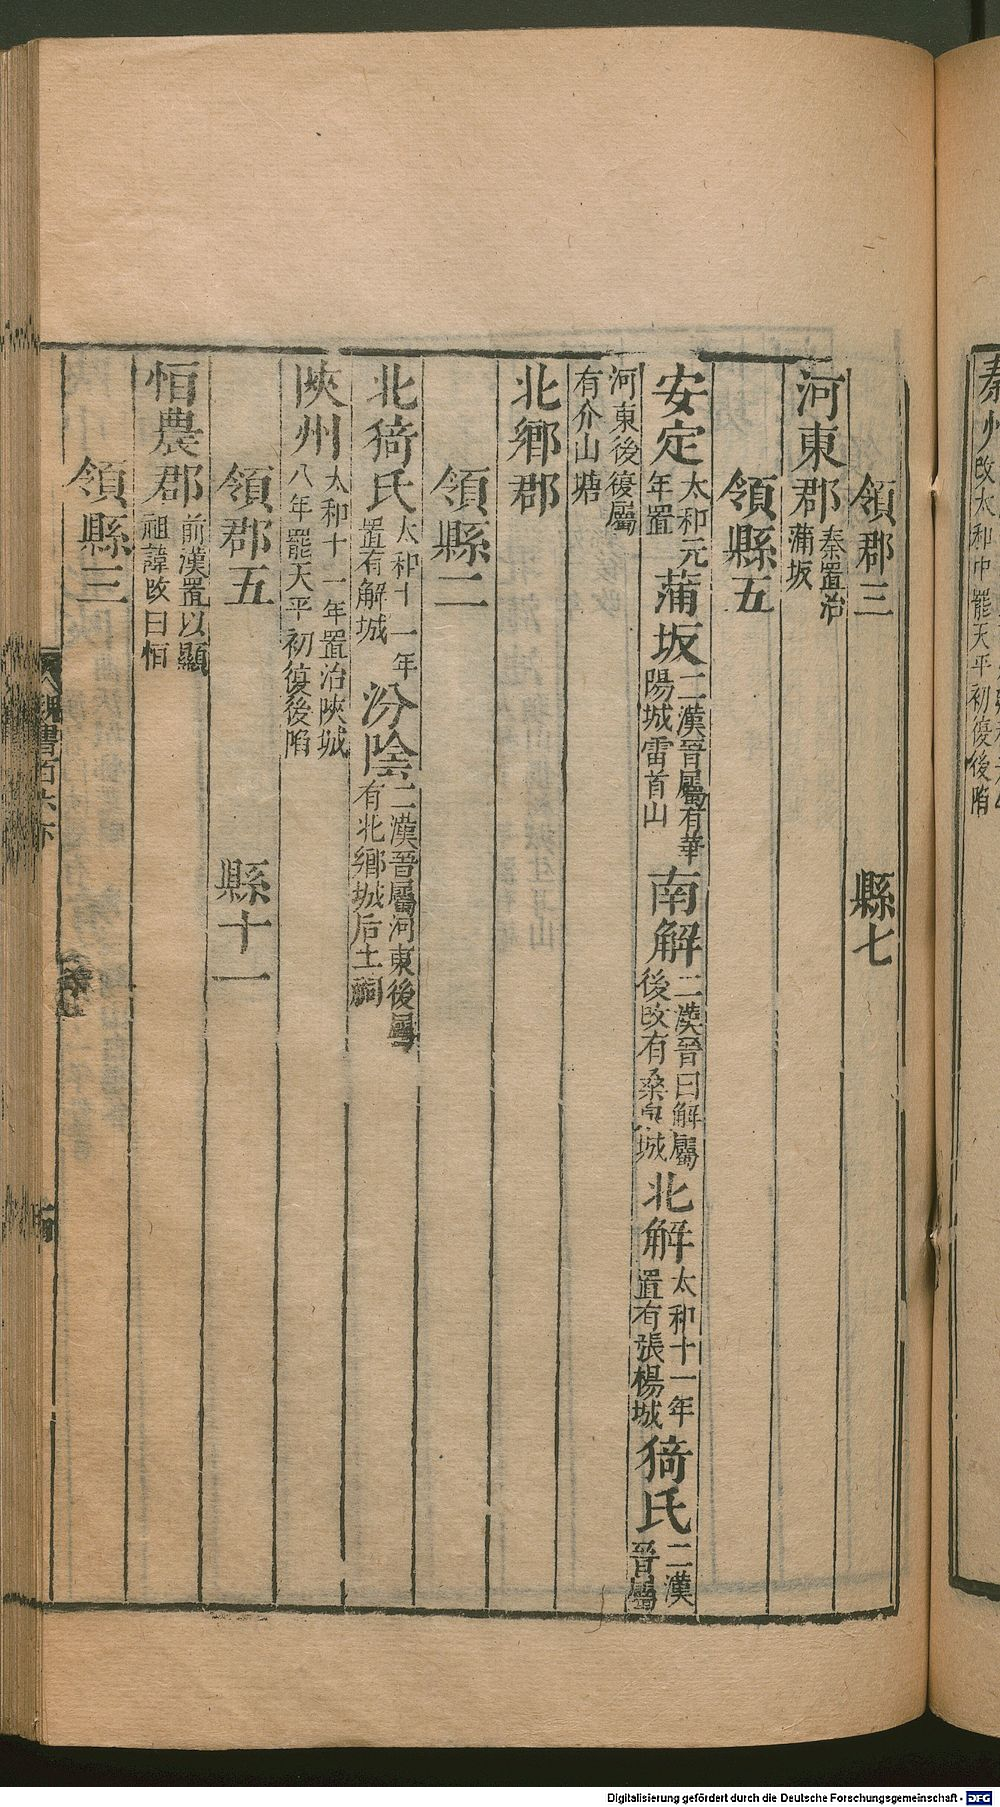 秦州改太和中罷天平初復後陷
領郡三　縣七
河東郡秦置治蒲坂
領縣五
安定太和元年置蒲坂二漢晉屬有華陽城雷首山南解二漢晉曰解屬後改有桑泉城北解太和十一年置有張楊城猗氏二漢晉屬
河東後復屬有介山塘
北鄉郡
領縣二
北猗氏太和十一年置有解城汾陰二漢晉屬河東後屬有北鄉城后土祠
陝州太和十一年置治陝城八年罷天平初復後陷
領郡五　縣十一
恒農郡前漢置以顯祖諱改曰恒
領縣三
魏書百六下
Digitalisierung gefördert durch die Deutsche Forschungsgemeinschaft - DFG